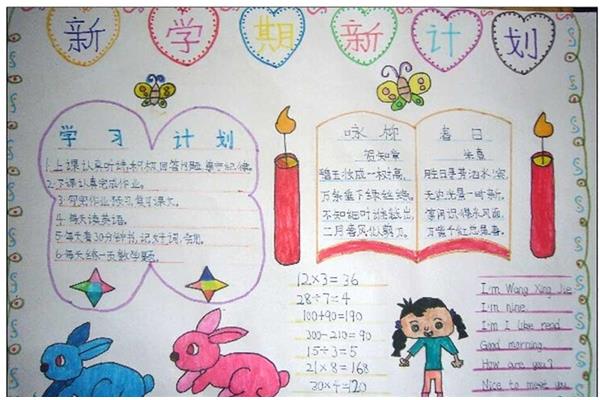 新学期新计划
学习计划
1.上课认真听讲,积极回答问题,遵守纪律。
2.下课认真完成作业。
3.写完作业预习复习课文。
4.每天读英语。
5.每天看30分钟书,记好词、好句。
6.每天练一页数学题。
咏柳
贺知章
碧玉妆成一树高,
万条垂下绿丝绦。
不知细叶谁裁出,
二月春风似剪刀。
春日
朱熹
胜日寻芳泗水滨,
无边光景一时新。
等闲识得东风面,
万紫千红总是春。
12×3=36
28÷7=4
100+90=190
300-210=90
15÷3=5
21×8=168
30×4=120
I'm Wang Xing Jie
I'm nine.
I'm I like read
Good morning.
How are you?
Nice to meve you